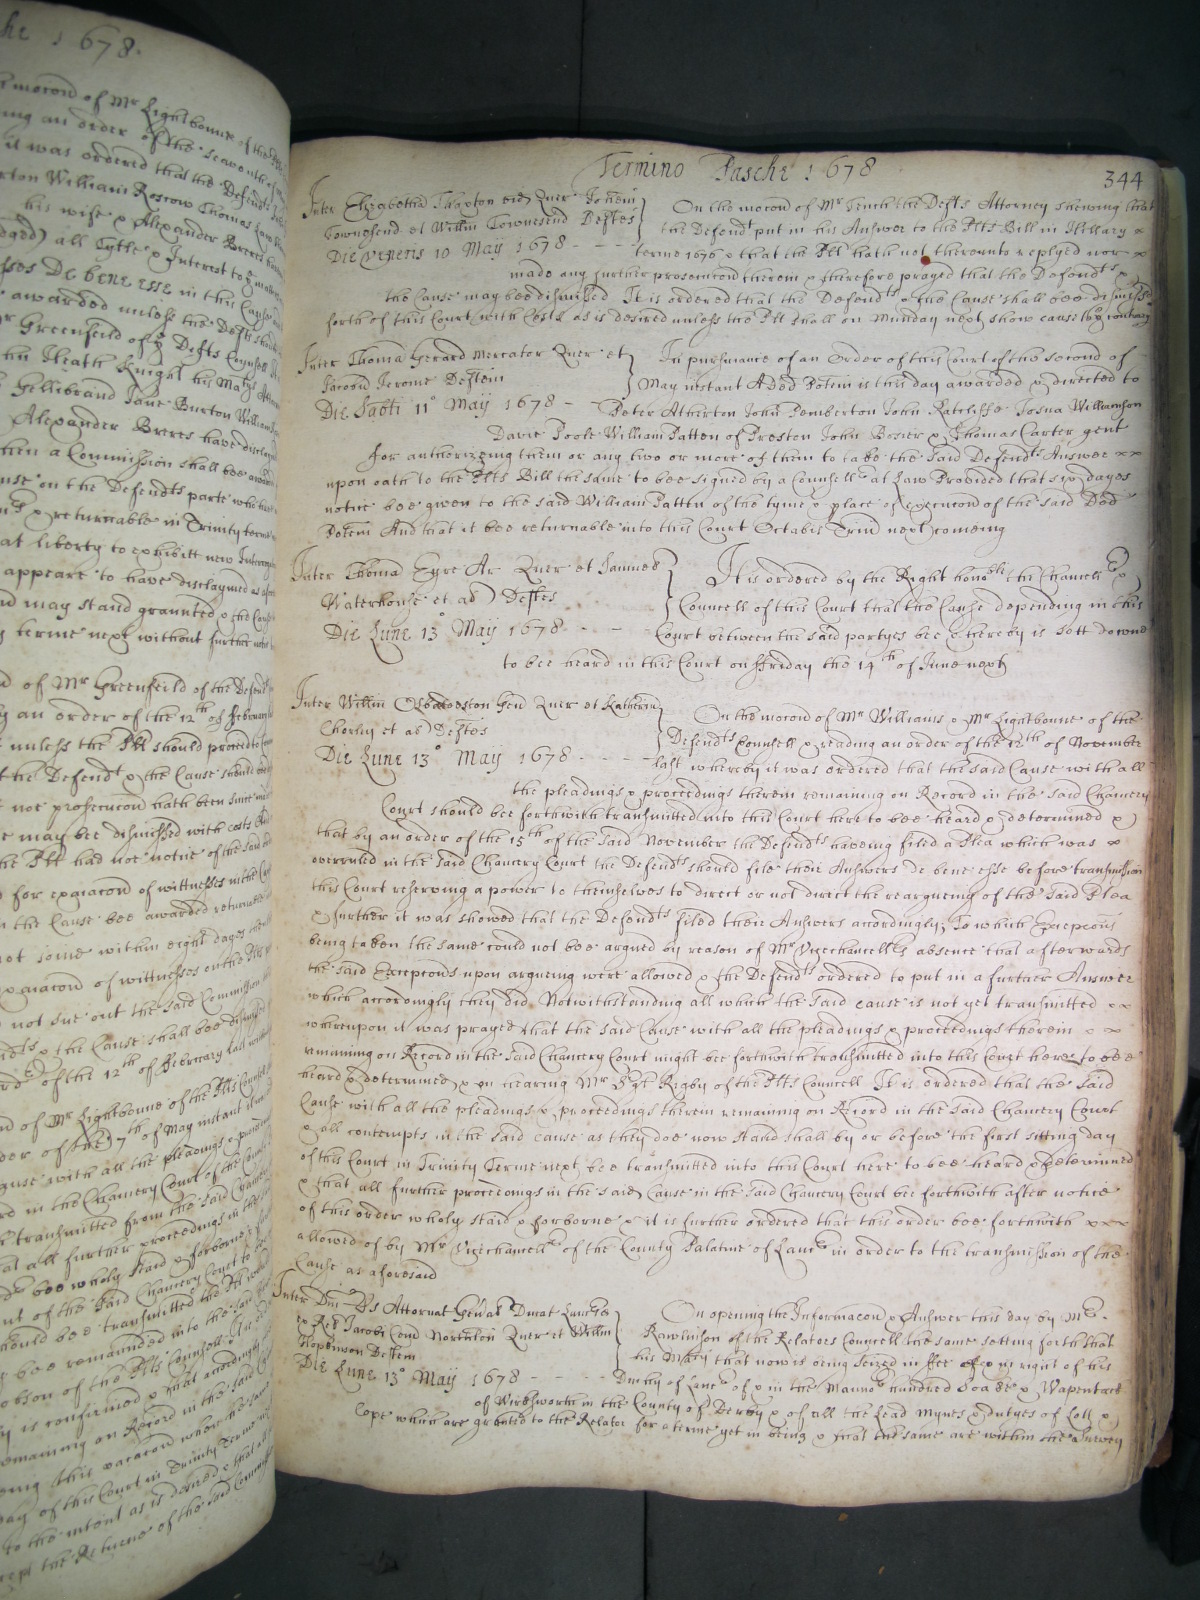 he 1678.
mocon̄d of Mr Lightbourne of the
ing an order of the seaventh of
it was ordered that the Defendts
rton William Roscow Thomas
his wife & Alexander Breres
all Tytle & Interest to
sses De bene esse in this Cause
awarded unless the Defts
Greenfeild of ye Defts Councell
hn Heath Knight his Matys
Gellibrand Jane Burton William
Alexander Breres have disclay
then a Commission shall bee
on the Defendts parte
& returnable in Trinity terme
at liberty to exhibitt new
appeare to have disclaymed as
nd may stand graunted & the
terme next without further
of Mr Greenfeild of the Defend
an order of the 12th of February
unless the Plt should proceed
the Defendt & the Cause should
noe prosecucōn hath been since
may bee dismissed with costs
the Plt had noe notice of the said
for exiacon of wittnesses in the
in the Cause bee awarded returnable
not some within eight dayes
exiacon of wittnesses on the
not sue out the said Commission
& the Cause shall bee dismiss
of the 12th of February last
of Mr Lightbourne of the Plts Councell
der of the 7th of May instant it
ause with all the pleadings &
in the Chancery Court of the County
transmitted from the said
at all further proceedings in the
bee wholy staid & forborne
of the said Chancery Court to
ould bee transmitted the Plt
bee remaunded into the said
obson of the Plts Councell
is confirmed & that accordingly
remaining on Record in the said
this vacacon where the same
day of this Court in Trinity Terme
to the intent as is desired
the Returne of the said Commiss
Termino Pasche 1678
344
Inter Elizabetha Thaxton vid Quer Johem
Townesend et Willm Townesend Deftes
Die veneris 10 May 1678 - - - -
On the mocon̄d of Mr Tench the Defts Attorney shewing that
the Defendt put in his Answer to the Plts Bill in Hillary x
terme 1676 & that the Plt hath not thereunto replyed nor x
made any further prosecucōn therein & therefore prayed that the Defendts x
the Cause may bee dismissed It is ordered that the Defendts & the Cause shall bee dismisst
forth of this Court with Costs as is desired unless the Plt shall on Munday next show cause to ye contrary
Inter Thoma Gerard Mercator Quer et
Jacobū Jerome Deftem
Die Sabti 11o May 1678 - -
In pursuance of an Order of this Court of the second of
May instant A Ded Potem is this day awarded & directed to
Peter Atherton John Pemberton John Ratcliffe Josua Williamson
Davie Poole William Patten of Preston John Bosier & Thomas Carter gent
for authorizeing them or any two or more of them to take the said Defendts Answer xx
upon oath to the Plts Bill the same to bee signed by a Counsellr at Law Provided that six dayes
notice bee given to the said William Patten of the tyme & place of execucon of the said Ded
Potem And that it bee returnable into this Court Octabis Trin next comeing
Inter Thoma Eyre Ar Quer et Samuel
Waterhouse et al Deftes
Die Lune 13o May 1678 - - - -
It is ordered by the Right honoble the Chancellr &
Councell of this Court that the Cause depending in this
Court between the said partyes bee & hereby is sett downe
to bee heard in this Court on Friday the 14th of June next
Inter Willm Osbaldeston Gen Quer et Katherin
Chorley et al Deftes
Die Lune 13o May 1678 - - - -
On the mocon̄d of Mr Williams & Mr Lightbonne of the
Defendts Councell & reading an order of the 12th of November
last whereby it was ordered that the said Cause with all
the pleadings & proceedings therein remaining on Record in the said Chancery
Court should bee forthwith transmitted into this Court here to bee heard & determined &
that by an order of the 15th of the said November the Defendts haveing filed a Plea which was x
overruled in the said Chancery Court the Defendts should file their Answers de bene esse before transmission
this Court reserving a power to themselves to direct or not direct the reargueing of the said Plea
& further it was showed that the Defendts filed their Answers accordingly, To which Excepcōns
being taken the same could not bee argued by reason of Mr Vicechancellrs absence that afterwards
the said Excepcons upon argueing were allowed & the Defendts ordered to put in a further Answer
which accordingly they did Notwithstanding all which the said cause is not yet transmitted xx
whereupon it was prayed that the said Cause with all the pleadings & proceedings therein x x
remaining on Record in the said Chancery Court might bee forthwith transmitted into this Court here to bee
heard & determined & on hearing Mr Serjt Rigby of the Plts Councell It is ordered that the said
Cause with all the pleadings & proceedings therein remaining on Record in the said Chancery Court
& all contempts in the said cause as they doe now stand shall by or before the first sitting day
of this Court in Trinity Terme next bee transmitted into this Court here to bee heard & determined
& that all further proceedings in the said Cause in the said Chancery Court bee forthwith after notice
of this order wholy staid & forborne & it is further ordered that this order bee forthwith xxx
allowed of by Mr Vicechancellr of the County Palatine of Lancr in order to the transmission of the
Cause as aforesaid
Inter Dni Rs Attornat Genal Ducat Lancr
ex Rel Jacobi Com Northton Quer et Willm
Hopkinson Deftem
Die Lune 13o May 1678 - - - -
On opening the Informacon & Answer this day by Mr
Rawlinson of the Relators Councell the same setting forth that
his Maty that now is being seized in ffee of & in right of his
Duchy of Lancr of & in the Mannor hundred Soake & Wapentake
of Wirksworth in the County of Derby & of all the Lead Mynes & dutyes of Lott &
Cope which are granted to the Relator for a terme yet in being & that the same are within the Survey